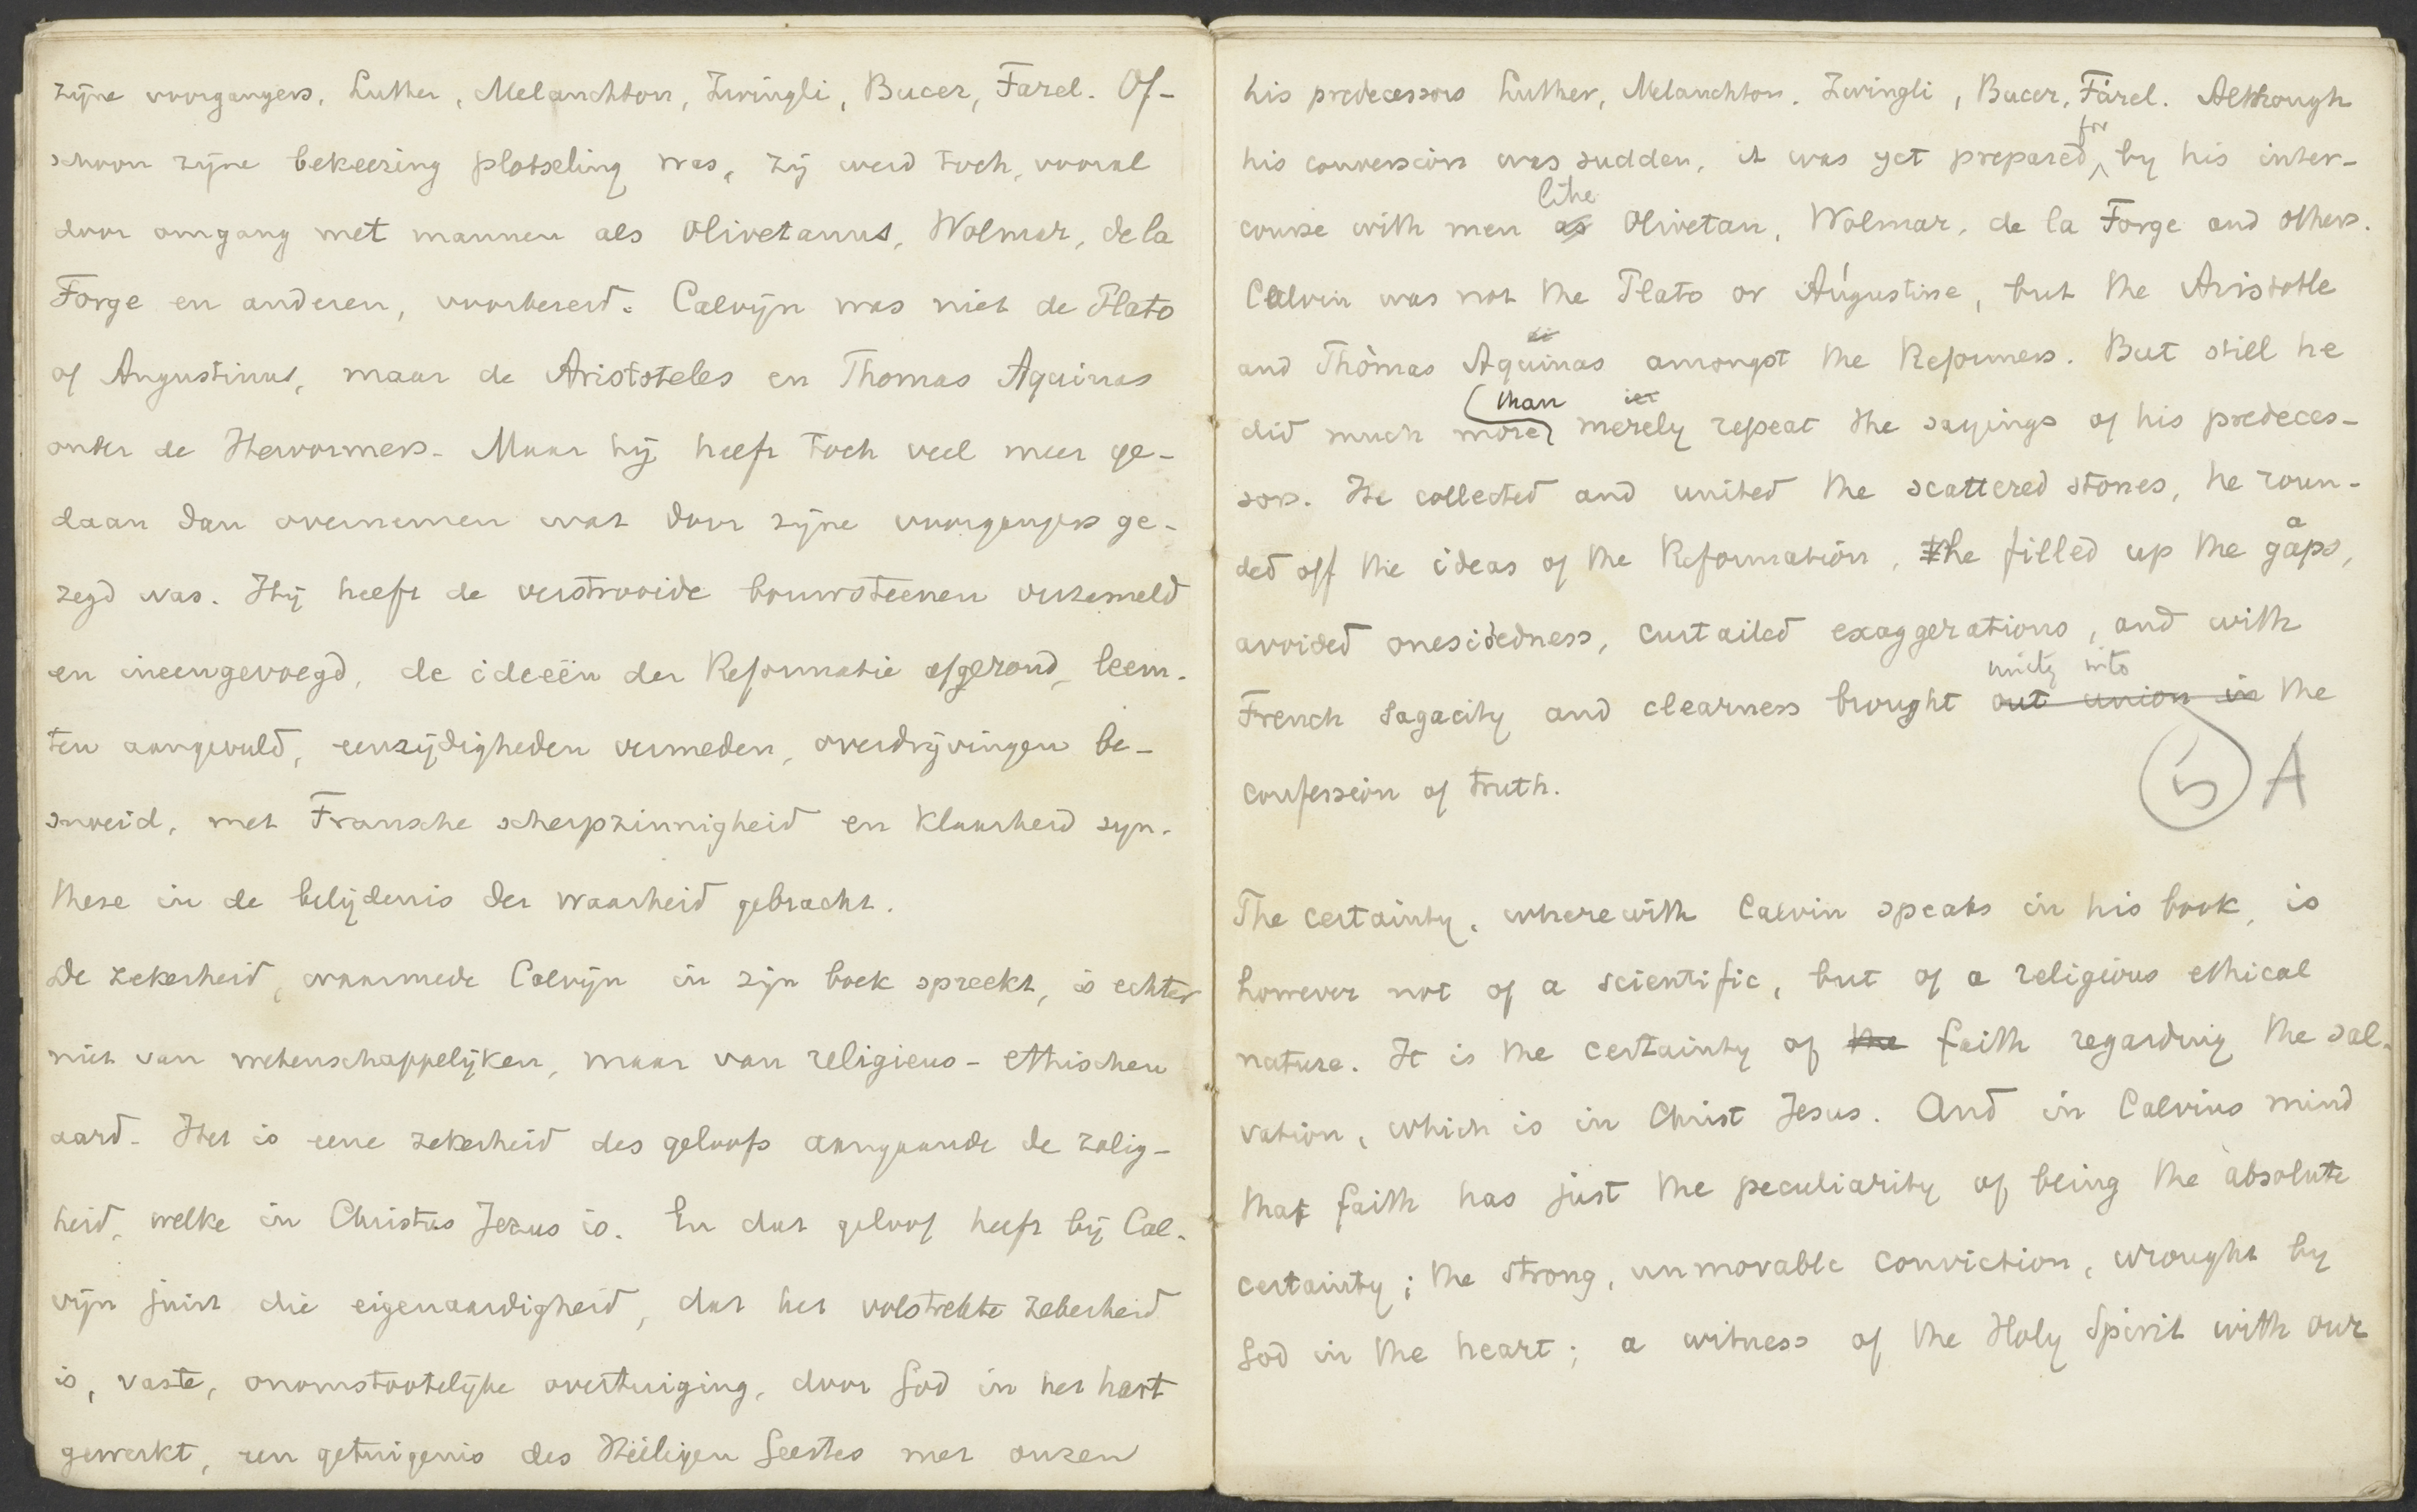 zijne voorgangers, Luther, Melanchton, Zwingli, Bucer, Farel. Of-
schoon zijne bekeering plotseling was, zij werd toch, vooral
door omgang met mannen als Olivetanus, Wolmar, de la
Forge en anderen, voorbereid. Calvijn was niet de Plato
of Augustinus, maar de Aristoteles en Thomas Aquinas
onder de Hervormers. Maar hij heeft toch veel meer ge-
daan dan overnemen wat door zijne voorgangers ge-
zegd was. Hij heeft de verstrooide bouwsteenen verzameld
en ineengevoegd, de ideeën der Reformatie afgerond, leem-
ten aangevuld, eenzijdigheden vermeden, overdrijvingen be-
snoeid, met Fransche scherpzinnigheid en klaarheid syn-
these in de belijdenis der waarheid gebracht.
De zekerheid, waarmede Calvijn in zijn boek spreekt, is echter
niet van wetenschappelijken, maar van religieus-ethischen
aard. Het is eene zekerheid des geloofs aangaande de zalig-
heid, welke in Christus Jezus is. En dat geloof heeft bij Cal-
vijn juist die eigenaardigheid, dat het volstrekte zekerheid
is, vaste, onomstootelijke overtuiging, door God in het hart
gewerkt, een getuigenis des Heiligen Geestes met onzen
his predecessors Luther, Melanchton, Zwingli, Bucer, Farel. Although
for
his conversion was sudden, it was yet prepared by his inter-
like
course with men as Olivetan, Wolmar, de la Forge and others.
Calvin was not the Plato or Augustine, but the Aristotle
and Thomas Aquinas amongst the Reformers. But still he
than
did much more merely repeat the sayings of his predeces-
sors. He collected and united the scattered stones, he roun-
ded off the ideas of the Reformation, he filled up the gaps,
a
avoided onesidedness, curtailed exaggerations, and with
unity into
French sagacity and clearness brought out union in the
confession of truth.
5 A
The certainty, wherewith Calvin speaks in his book, is
however not of a scientific, but of a religious ethical
nature. It is the certainty of the faith regarding the sal-
vation, which is in Christ Jesus. And in Calvins mind
that faith has just the peculiarity of being the absolute
certainty; the strong, unmovable conviction, wrought by
God in the heart; a witness of the Holy Spirit with our